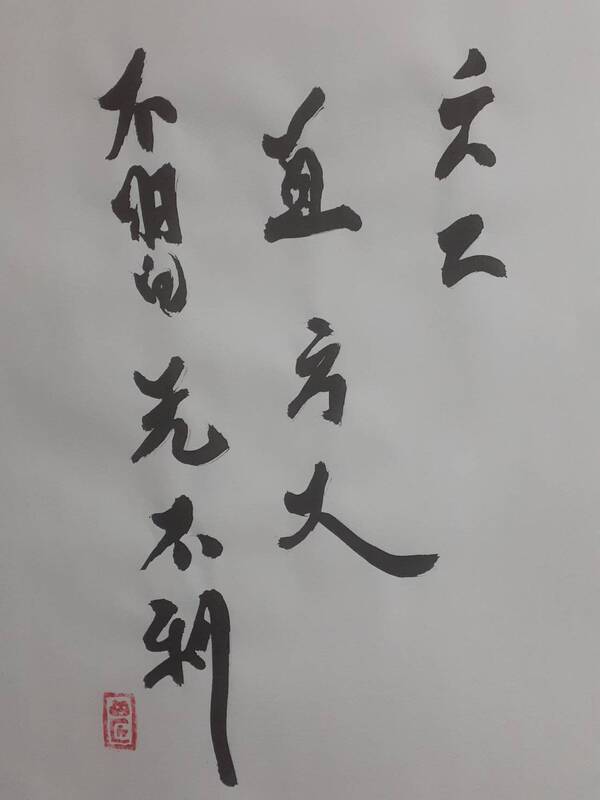 六二
直方大
不習无不利